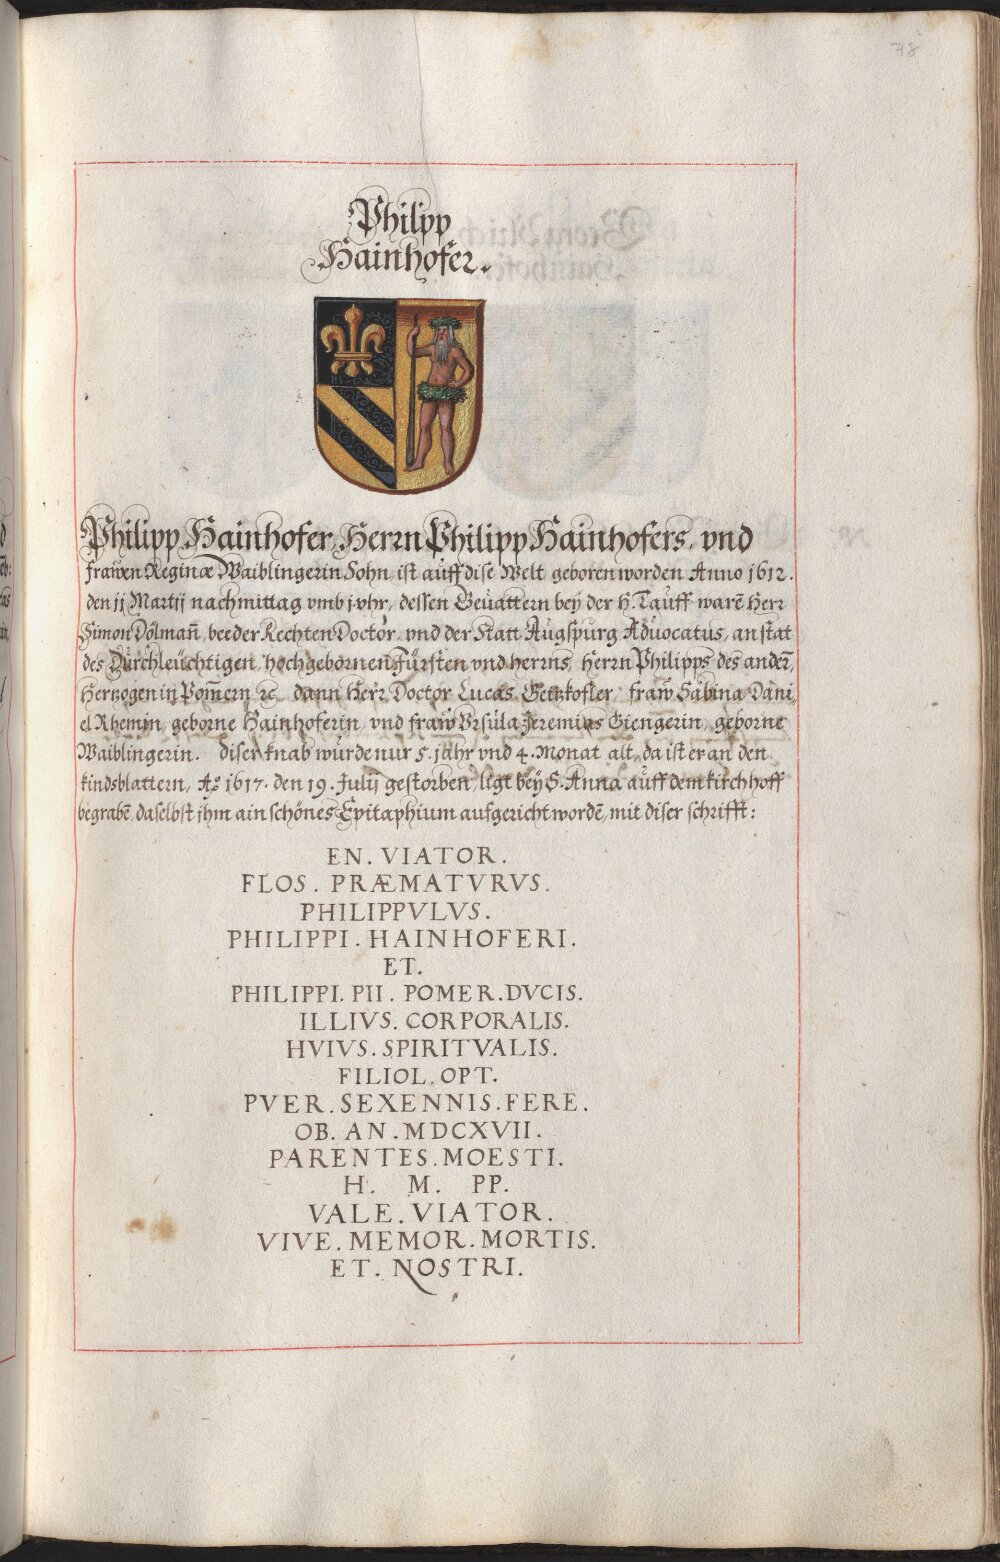 78
Philipp
Hainhofer.
Philipp Hainhofer, Herrn Philipp Hainhofers, vnd
frawen Reginæ Waiblingerin Sohn, ist auff dise Welt geboren worden Anno 1612.
den 11 Martij nachmittag vmb 1 vhr, dessen Gevattern bey der H. Tauff warē Herr
Simon Dölman̄, beeder Rechten Doctor, vnd der Statt Augspurg Aduocatus, an stat
des Durchleuchtigen, hochgebornen Fürsten vnd herrns, Herrn Philipps des anderē,
Hertzogen in Pom̄ern ꝛc. dann Herr Doctor Lucas Geitzkofler, fraw Sabina Dani-
el Rhemin, geborne Hainhoferin, vnd fraw Vrsula Jeremias Giengerin, geborne
Waiblingerin. diser knab wurde nur 5. jahr vnd 4. Monat alt, da ist er an den
kindsblattern, Aº 1617. den 19. Julij gestorben, ligt bey S. Anna auff dem kirchhoff
begrabē, daselbst jhm ain schönes Epitaphium aufgericht wordē, mit diser schrifft:
EN. VIATOR.
FLOS. PRÆMATVRVS.
PHILIPPVLVS.
PHILIPPI. HAINHOFERI.
ET.
PHILIPPI. PII. POMER. DVCIS.
ILLIVS. CORPORALIS.
HVIVS. SPIRITVALIS.
FILIOL. OPT.
PVER. SEXENNIS. FERE.
OB. AN. MDCXVII.
PARENTES. MOESTI.
H. M. PP.
VALE. VIATOR.
VIVE. MEMOR. MORTIS.
ET. NOSTRI.